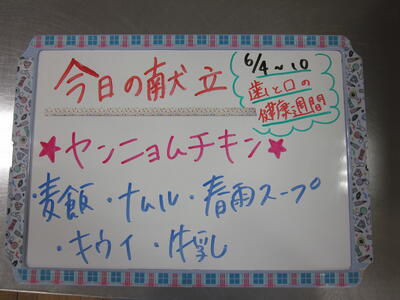 今日の献立
6/4~10
歯と口の
健康週間
★ヤンニョムチキン★
・麦飯・ナムル・春雨スープ
・キウイ・牛乳